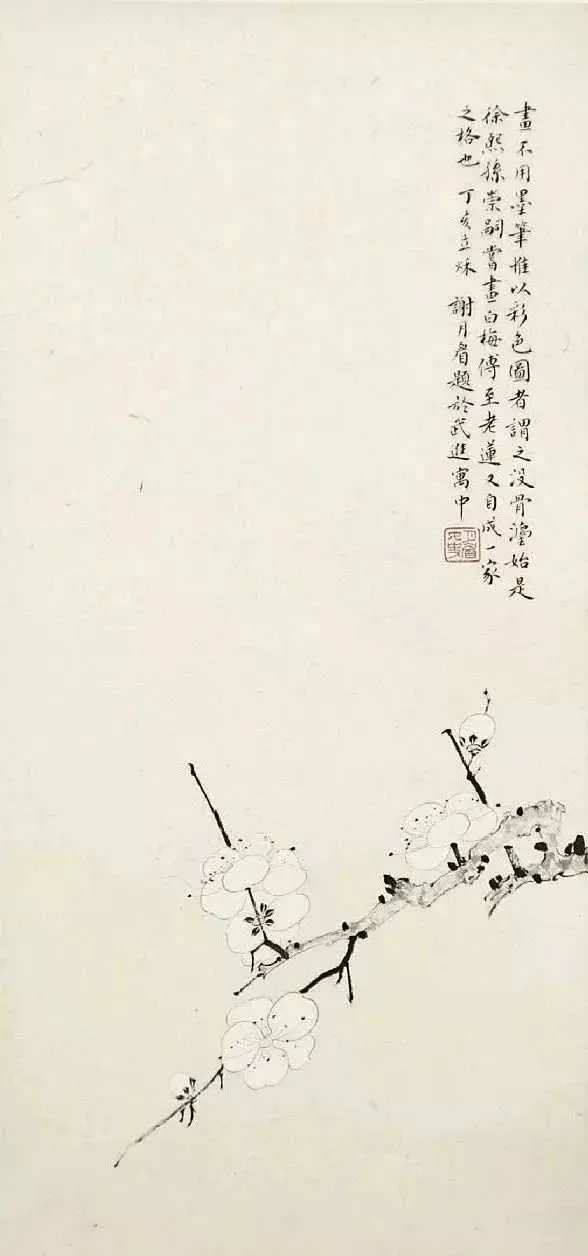 畫不用墨筆惟以彩色圖者謂之没骨濷始是
徐熙孫崇嗣嘗畫白梅傅至老蓮又自成一家
之格也 丁亥立秌 謝月眉題於武進寓中
月眉